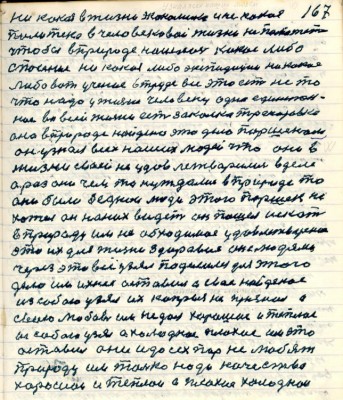 167
ни какая в жизни экономика и не какая
политека в человековой жизни не поможет
чтобы в природе нашлось какое либо
спасение ни какая либо экспедиция ни какое
либо вот учение в труде все это есть не то
что надо у жизни человеку одна единствен-
ное во всей жизни есть закалка тренировка
она в природе найдена это дело Паршеком
он узнал всех наших людей что они в
жизни своей не удовлетварили в деле
а раз они чем то нуждалис в природе то
они были бедном люди этого Паршек не
хотел он наших видеть он пошел искать
в природу им не обходимое удовлетворение
это их для жизни здоровия он с людями
через это всё узял поделился для этого
дело им ихнее оставил а свое найденое
из собою узял их напряг не признал а
свою любовь им недал хорошие и теплое
из собою узял а холодное плохое им это
оставил они и до сех пор не любят
природу им толко надо качество
хорошои и теплои а плохое холодное